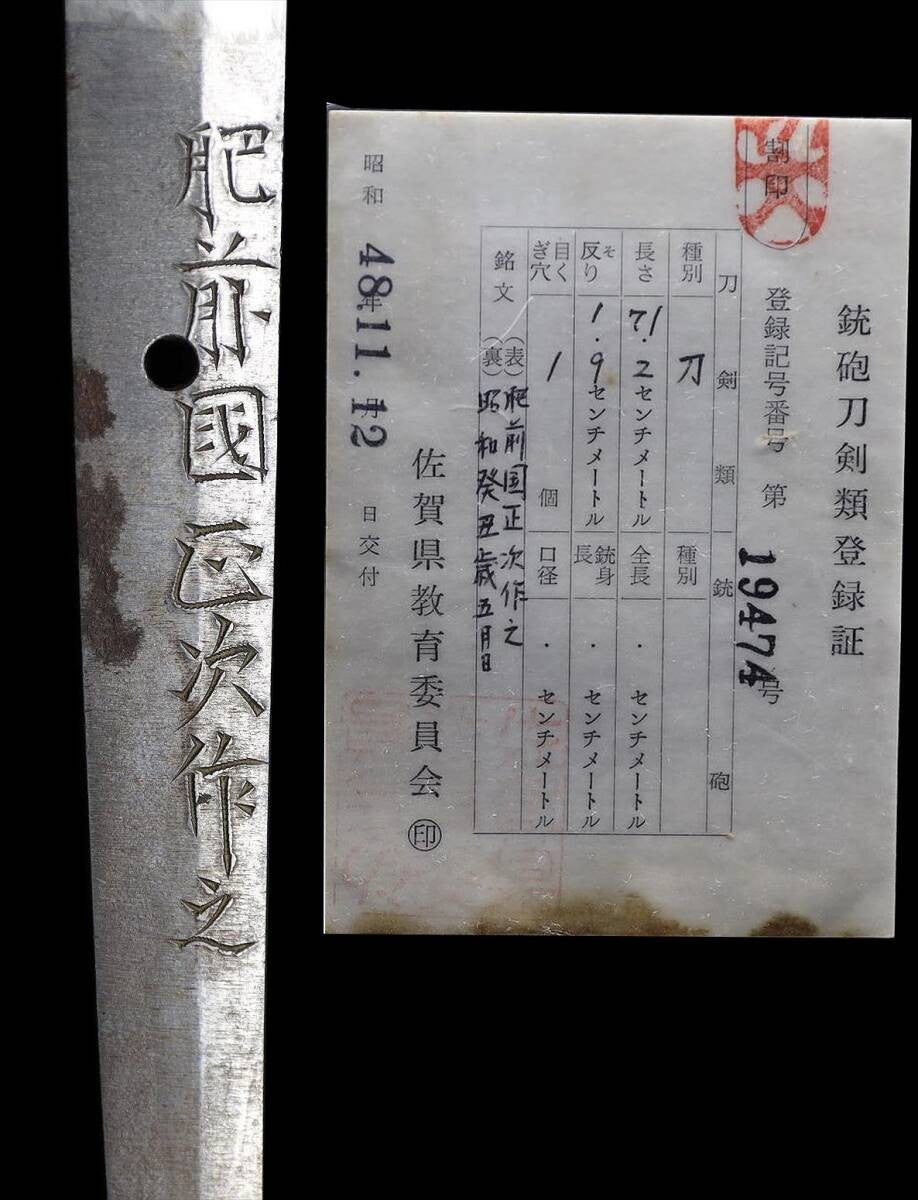 肥前國正次作之
銃砲刀剣類登録証
割印
登録記号番号 第 19474 号
刀剣類 銃砲
種別 刀 種別
長さ 71.2 センチメートル 全長 . センチメートル
反り そ 1.9 センチメートル 銃身長 . センチメートル
目くぎ穴 1 個 口径 . センチメートル
銘文 (表) 肥前国正次作之
(裏) 昭和癸丑歳五月日
佐賀県教育委員会 印
昭和 48年11.12 日交付